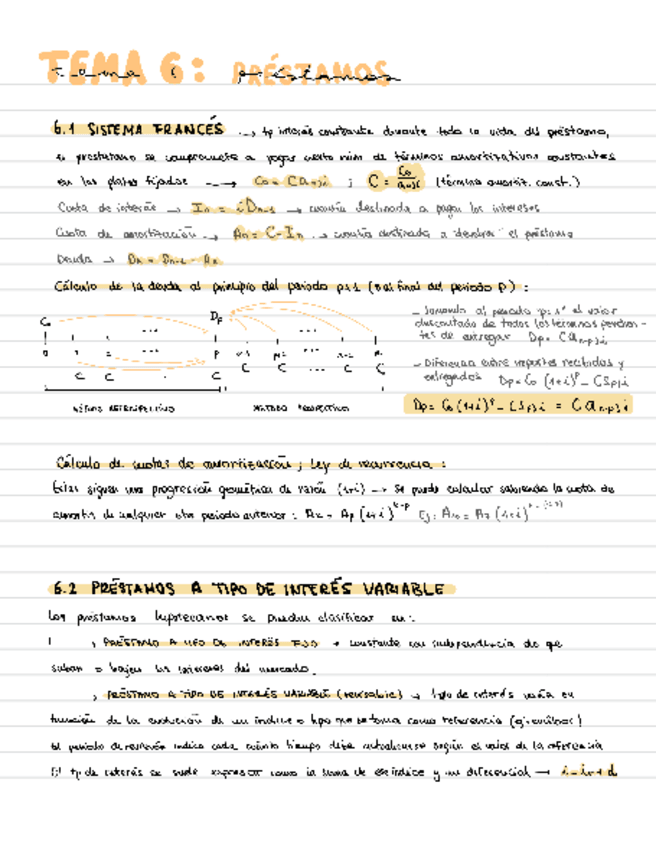 TEMA 6: PRÉSTAMOS
Tema 6 préstamos
6.1 SISTEMA FRANCÉS → tp interés constante durante toda la vida del préstamo,
el prestatario se compromete a pagar cierto núm de términos amortizativos constantes
en los plazos fijados → C₀ = C aₙ¬i ; C = C₀/aₙ¬i (término amortiz. const.)
Cuota de interés → Iₙ = i Dₙ₋₁ → cuantía destinada a pagar los intereses
Cuota de amortización → Aₙ = C - Iₙ → cuantía destinada a "devolver" el préstamo
Deuda → Dₙ = Dₙ₋₁ - Aₙ
Cálculo de la deuda al principio del periodo p+1 (o al final del periodo p) :
C₀ ... Dₚ
0 1 ... p p+1 p+2 ... n-1 n
C C ... C C C ... C C
MÉTODO RETROSPECTIVO MÉTODO PROSPECTIVO
– Sumando al periodo "p+1" el valor
descontado de todos los términos pendien-
tes de entregar Dₚ = C aₙ₋ₚ¬i
– Diferencia entre importes recibidos y
entregados Dₚ = C₀ (1+i)ᵖ - C Sₚ¬i
Dₚ = C₀ (1+i)ᵖ - C Sₚ¬i = C aₙ₋ₚ¬i
Cálculo de cuotas de amortización ; Ley de recurrencia :
Estas siguen una progresión geométrica de razón (1+i) → Se puede calcular sabiendo la cuota de
amortiz. de cualquier otro periodo anterior :
6.2 PRÉSTAMOS A TIPO DE INTERÉS VARIABLE
Los préstamos hipotecarios se pueden clasificar en:
PRÉSTAMO A TIPO DE INTERÉS FIJO → constante con independencia de que
suban o bajen los intereses del mercado.
PRÉSTAMO A TIPO DE INTERÉS VARIABLE (revisable) → tipo de interés varía en
función de la evolución de un índice o tipo que se toma como referencia (ej: euribor)
El periodo de revisión indica cada cuánto tiempo debe actualizarse según el valor de la referencia
El tp de interés se suele expresar como la suma de ese índice y un diferencial →